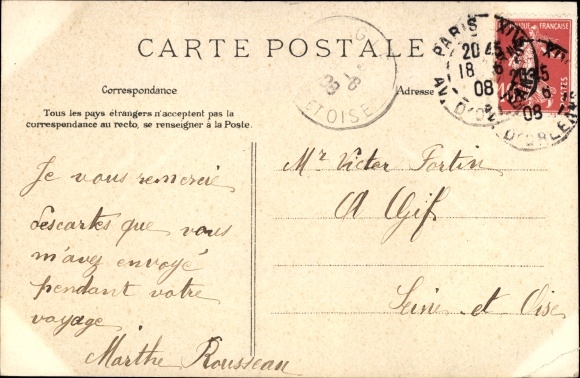 CARTE POSTALE
Correspondance
Adresse
Tous les pays étrangers n'acceptent pas la
correspondance au recto, se renseigner à la Poste.
PARIS XIV
20 45
18 6
08
AV. D'ORLEANS
ET OISE
RÉPUBLIQUE FRANÇAISE
POSTES
10
Je vous remercie
des cartes que vous
m'avez envoyé
pendant votre
voyage
Marthe Rousseau
Mr Victor Fortin
A Gif
Seine et Oise